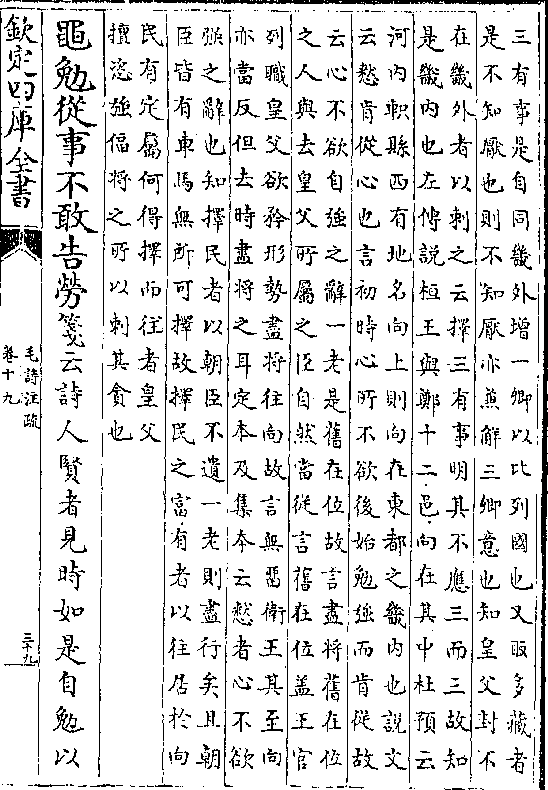 三有事是自同畿外增一卿以比列國也又取多藏者
是不知厭也則不知厭亦兼解三卿意也知皇父封不
在畿外者以刺之云擇三有事明其不應三而三故知
是畿内也左傳說桓王與鄭十二邑向在其中杜預云
河内軹縣西有地名向上則向在東都之畿内也說文
云憖肯從心也言初時心所不欲後始勉強而肯從故
云心不欲自強之辭一老是舊在位故言盡將舊在位
之人與去皇父所屬之臣自然當從言舊在位盖王官
列職皇父欲矜形勢盡將往向故言無留衛王其至向
亦當反但去時盡將之耳定本及集本云憖者心不欲
強之辭也知擇民者以朝臣不遺一老則盡行矣且朝
臣皆有車馬無所可擇故擇民之富有者以往居於向
民有定屬何得擇而往者皇父
擅恣強偪將之所以刺其貪也
黽勉從事不敢告勞箋云詩人賢者見時如是自勉以
欽定四庫全書
毛詩注疏
卷十九
三十九